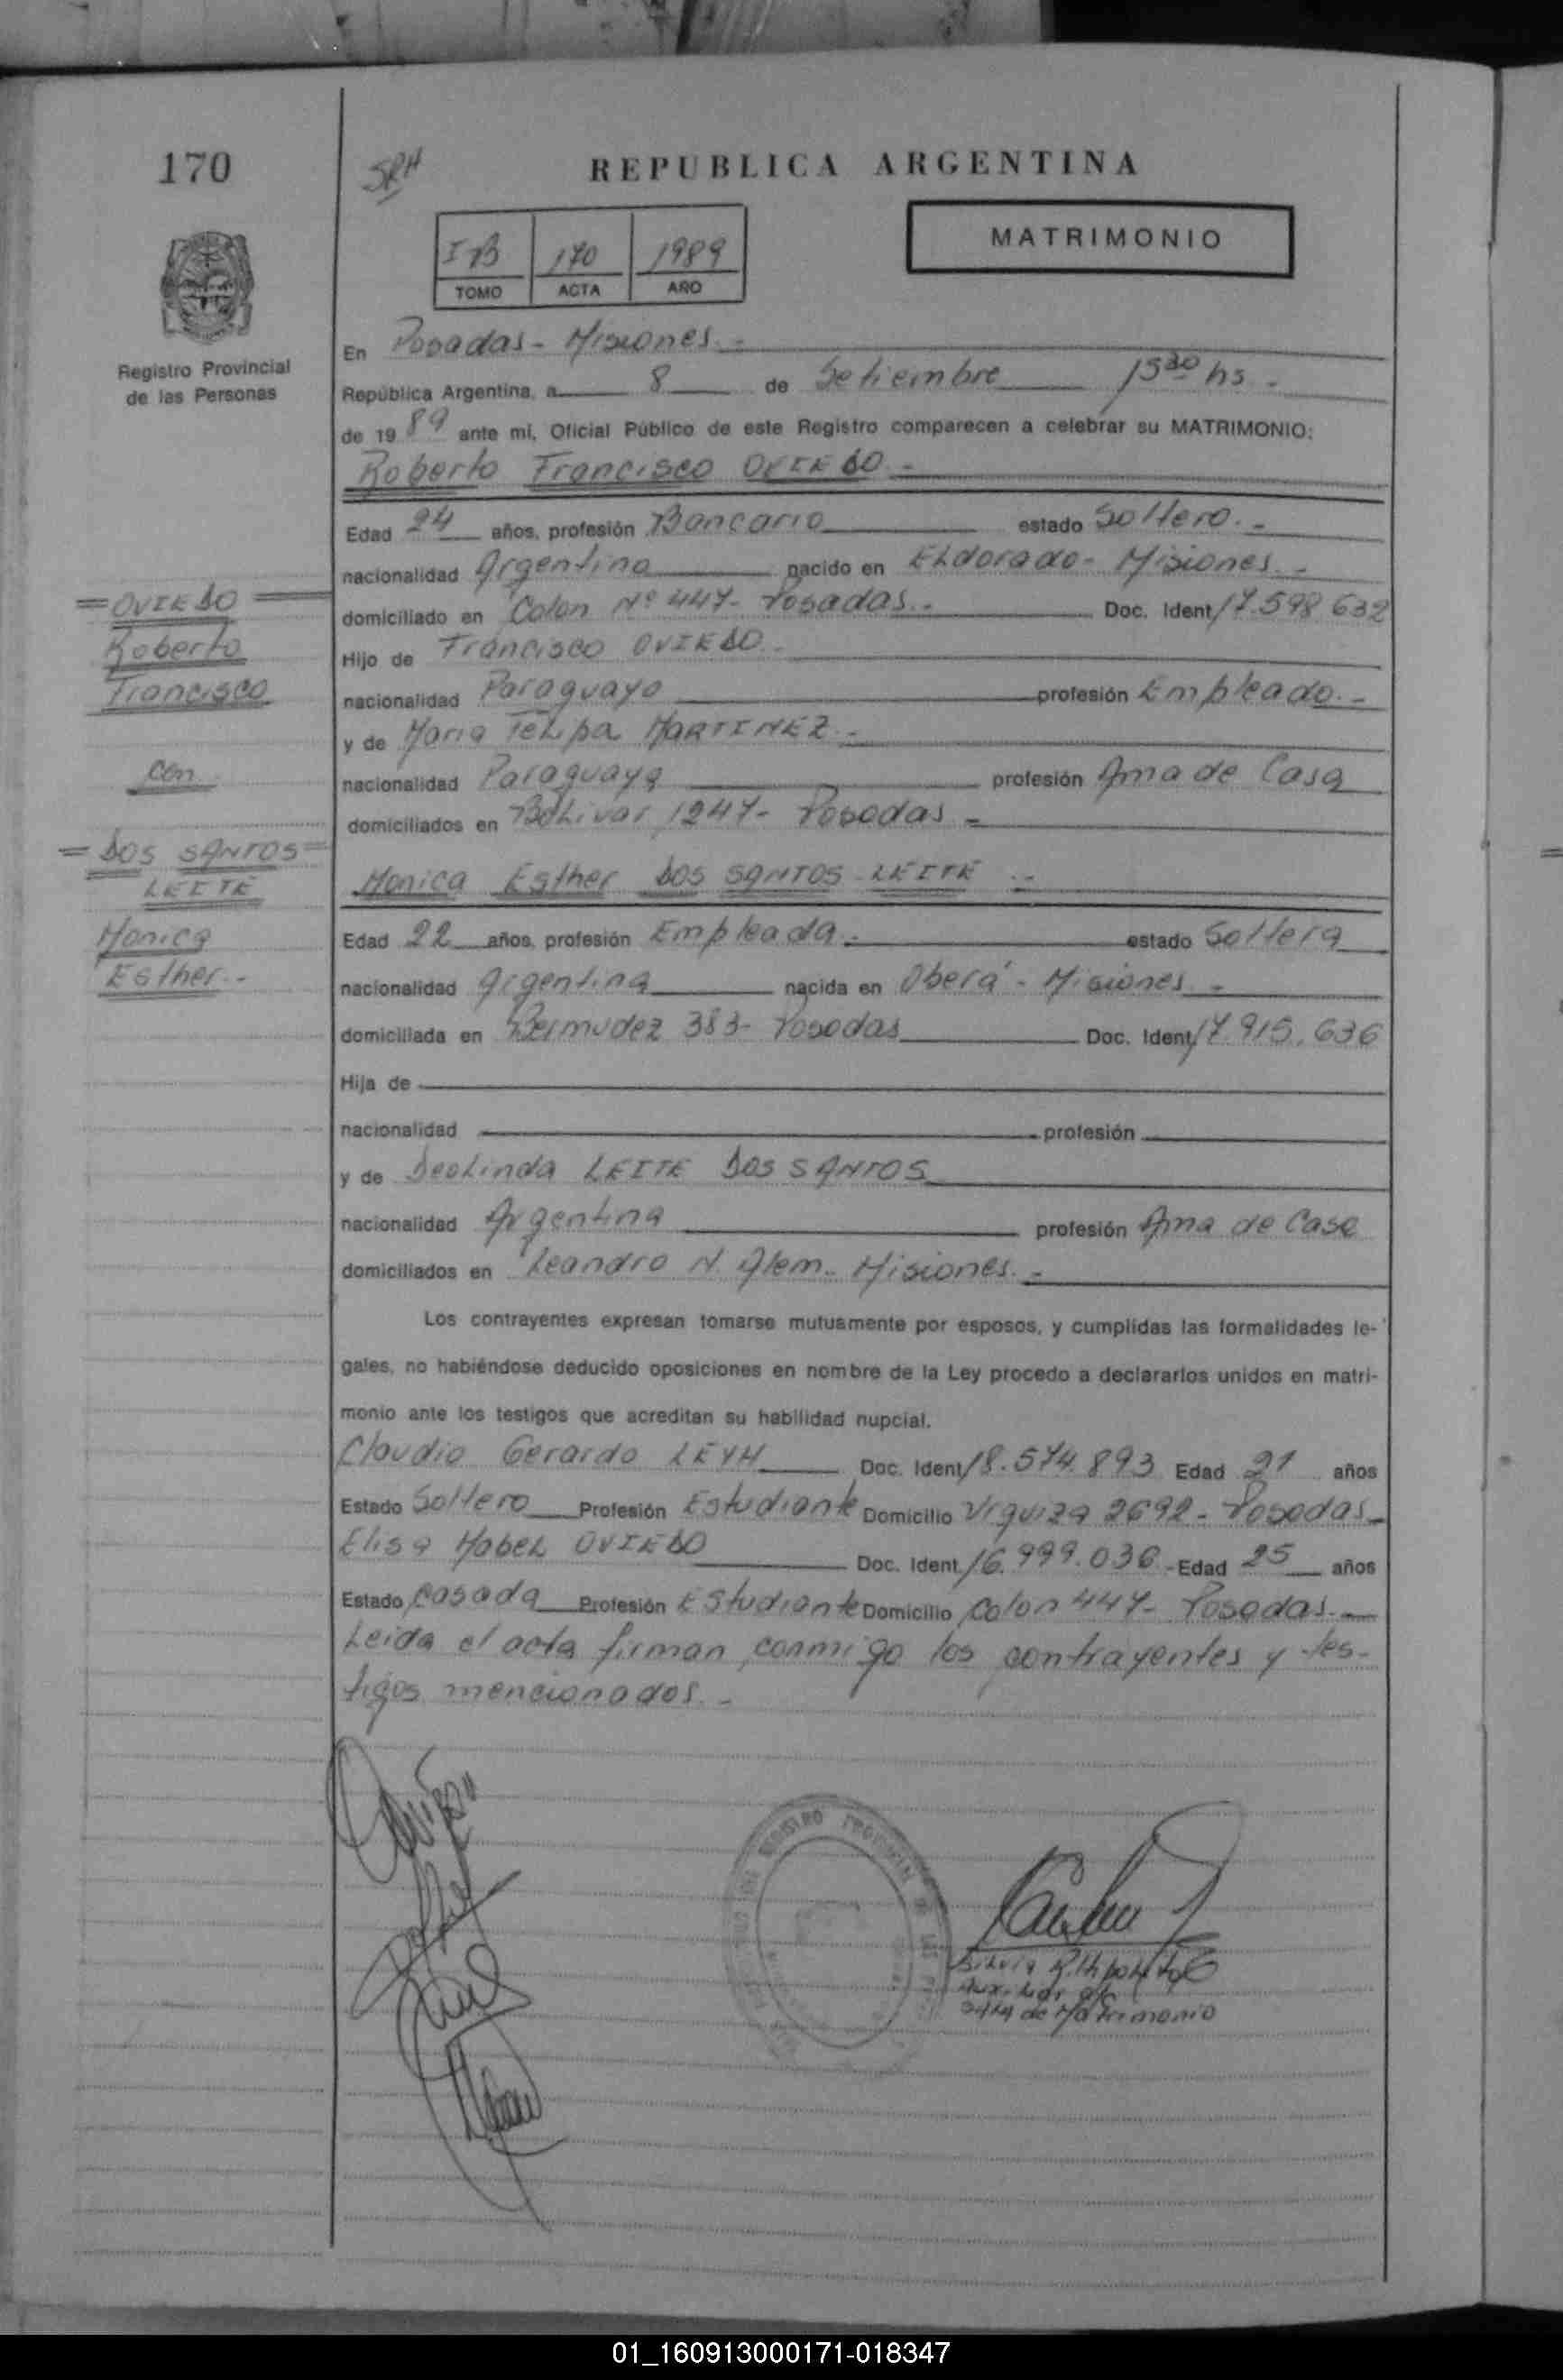 170
SRH
REPUBLICA ARGENTINA
IB 170 1989
TOMO ACTA AÑO
MATRIMONIO
Registro Provincial
de las Personas
En Posadas - Misiones. -
República Argentina, a 8 de Setiembre 15 30 hs. -
de 19 89 ante mí, Oficial Público de este Registro comparecen a celebrar su MATRIMONIO:
Roberto Francisco OVIEDO. -
Edad 24 años, profesión Bancario estado Soltero. -
nacionalidad Argentina nacido en ELdorado - Misiones. -
domiciliado en Colon Nº 447 - Posadas. - Doc. Ident. 17.598.632
Hijo de Francisco OVIEDO. -
nacionalidad Paraguayo profesión Empleado. -
y de Maria FeLipa MARTINEZ. -
nacionalidad Paraguaya profesión Ama de Casa
domiciliados en BoLivar 1247 - Posadas -
Monica Esther DOS SANTOS LEITE. -
Edad 22 años, profesión Empleada. - estado Soltera
nacionalidad Argentina nacida en Oberá - Misiones. -
domiciliada en Bermudez 383 - Posadas Doc. Ident. 17.915.636
Hija de
nacionalidad profesión
y de DeoLinda LEITE DOS SANTOS
nacionalidad Argentina profesión Ama de Casa
domiciliados en Leandro N. Alem - Misiones. -
Los contrayentes expresan tomarse mutuamente por esposos, y cumplidas las formalidades le-
gales, no habiéndose deducido oposiciones en nombre de la Ley procedo a declararlos unidos en matri-
monio ante los testigos que acreditan su habilidad nupcial.
Claudio Gerardo LEYH Doc. Ident. 18.574.893 Edad 21 años
Estado Soltero Profesión Estudiante Domicilio Urquiza 2692 - Posadas -
Elisa MabeL OVIEDO Doc. Ident. 16.999.036 - Edad 25 años
Estado Casada Profesión Estudiante Domicilio Colon 447 - Posadas. -
Leida el acta firman conmigo los contrayentes y tes-
tigos mencionados. -
= OVIEDO =
Roberto
Francisco
con
= DOS SANTOS =
LEITE
Monica
Esther. -
REGISTRO PROVINCIAL DE LAS
de Matrimonio
01_160913000171-018347